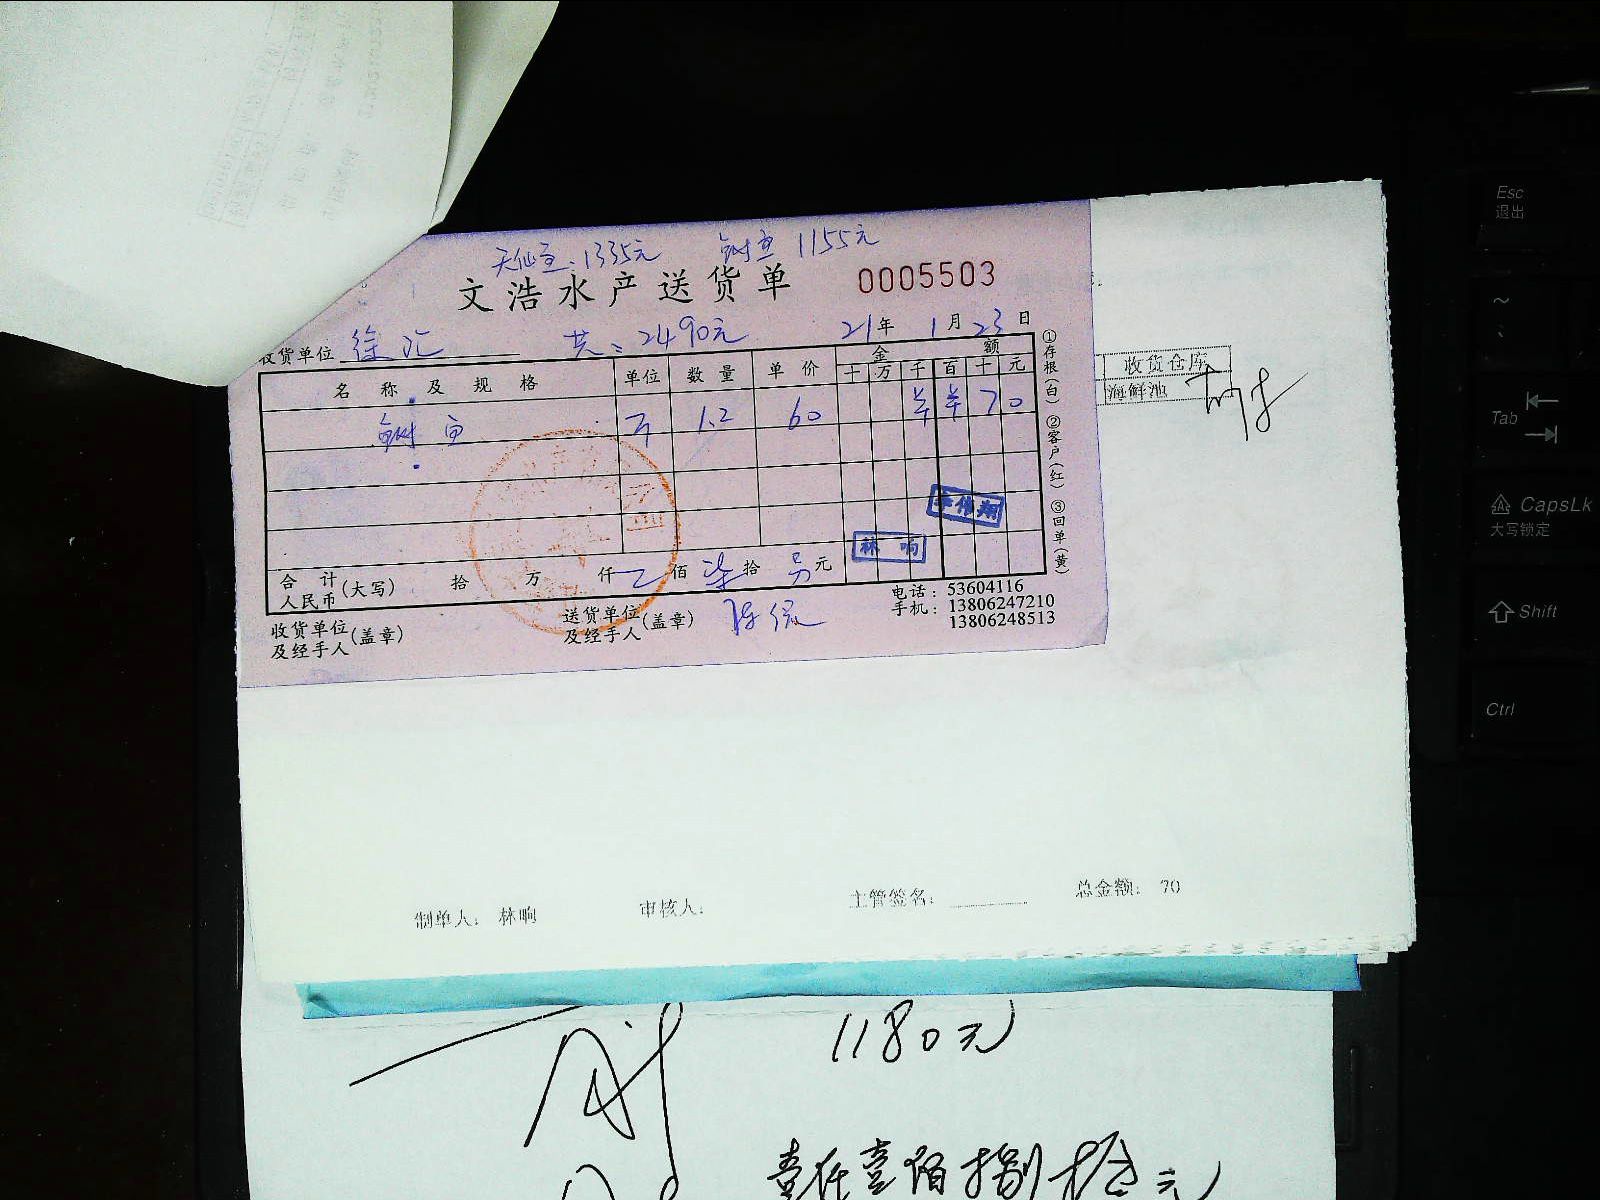 天仙鱼:1335元 鲥鱼 1155元
文浩水产送货单 0005503
收货单位 徐汇 共:2490元 21年1月23日
名称及规格 单位 数量 单价 金额
十 万 千 百 十 元
鲥鱼 斤 1.2 60 7 0
合计 人民币(大写) 拾 万 仟 佰 柒拾 元
收货单位及经手人(盖章)
送货单位及经手人(盖章)
电话:53604116
手机:13806247210
13806248513
①存根(白) ②客户(红) ③回单(黄)
李伟翔
林响
收货仓库
海鲜池
制单人: 林响 审核人: 主管签名: 总金额: 70
1180元
壹仟壹佰捌拾元
Esc
退出
~
Tab
CapsLk
大写锁定
Shift
Ctrl